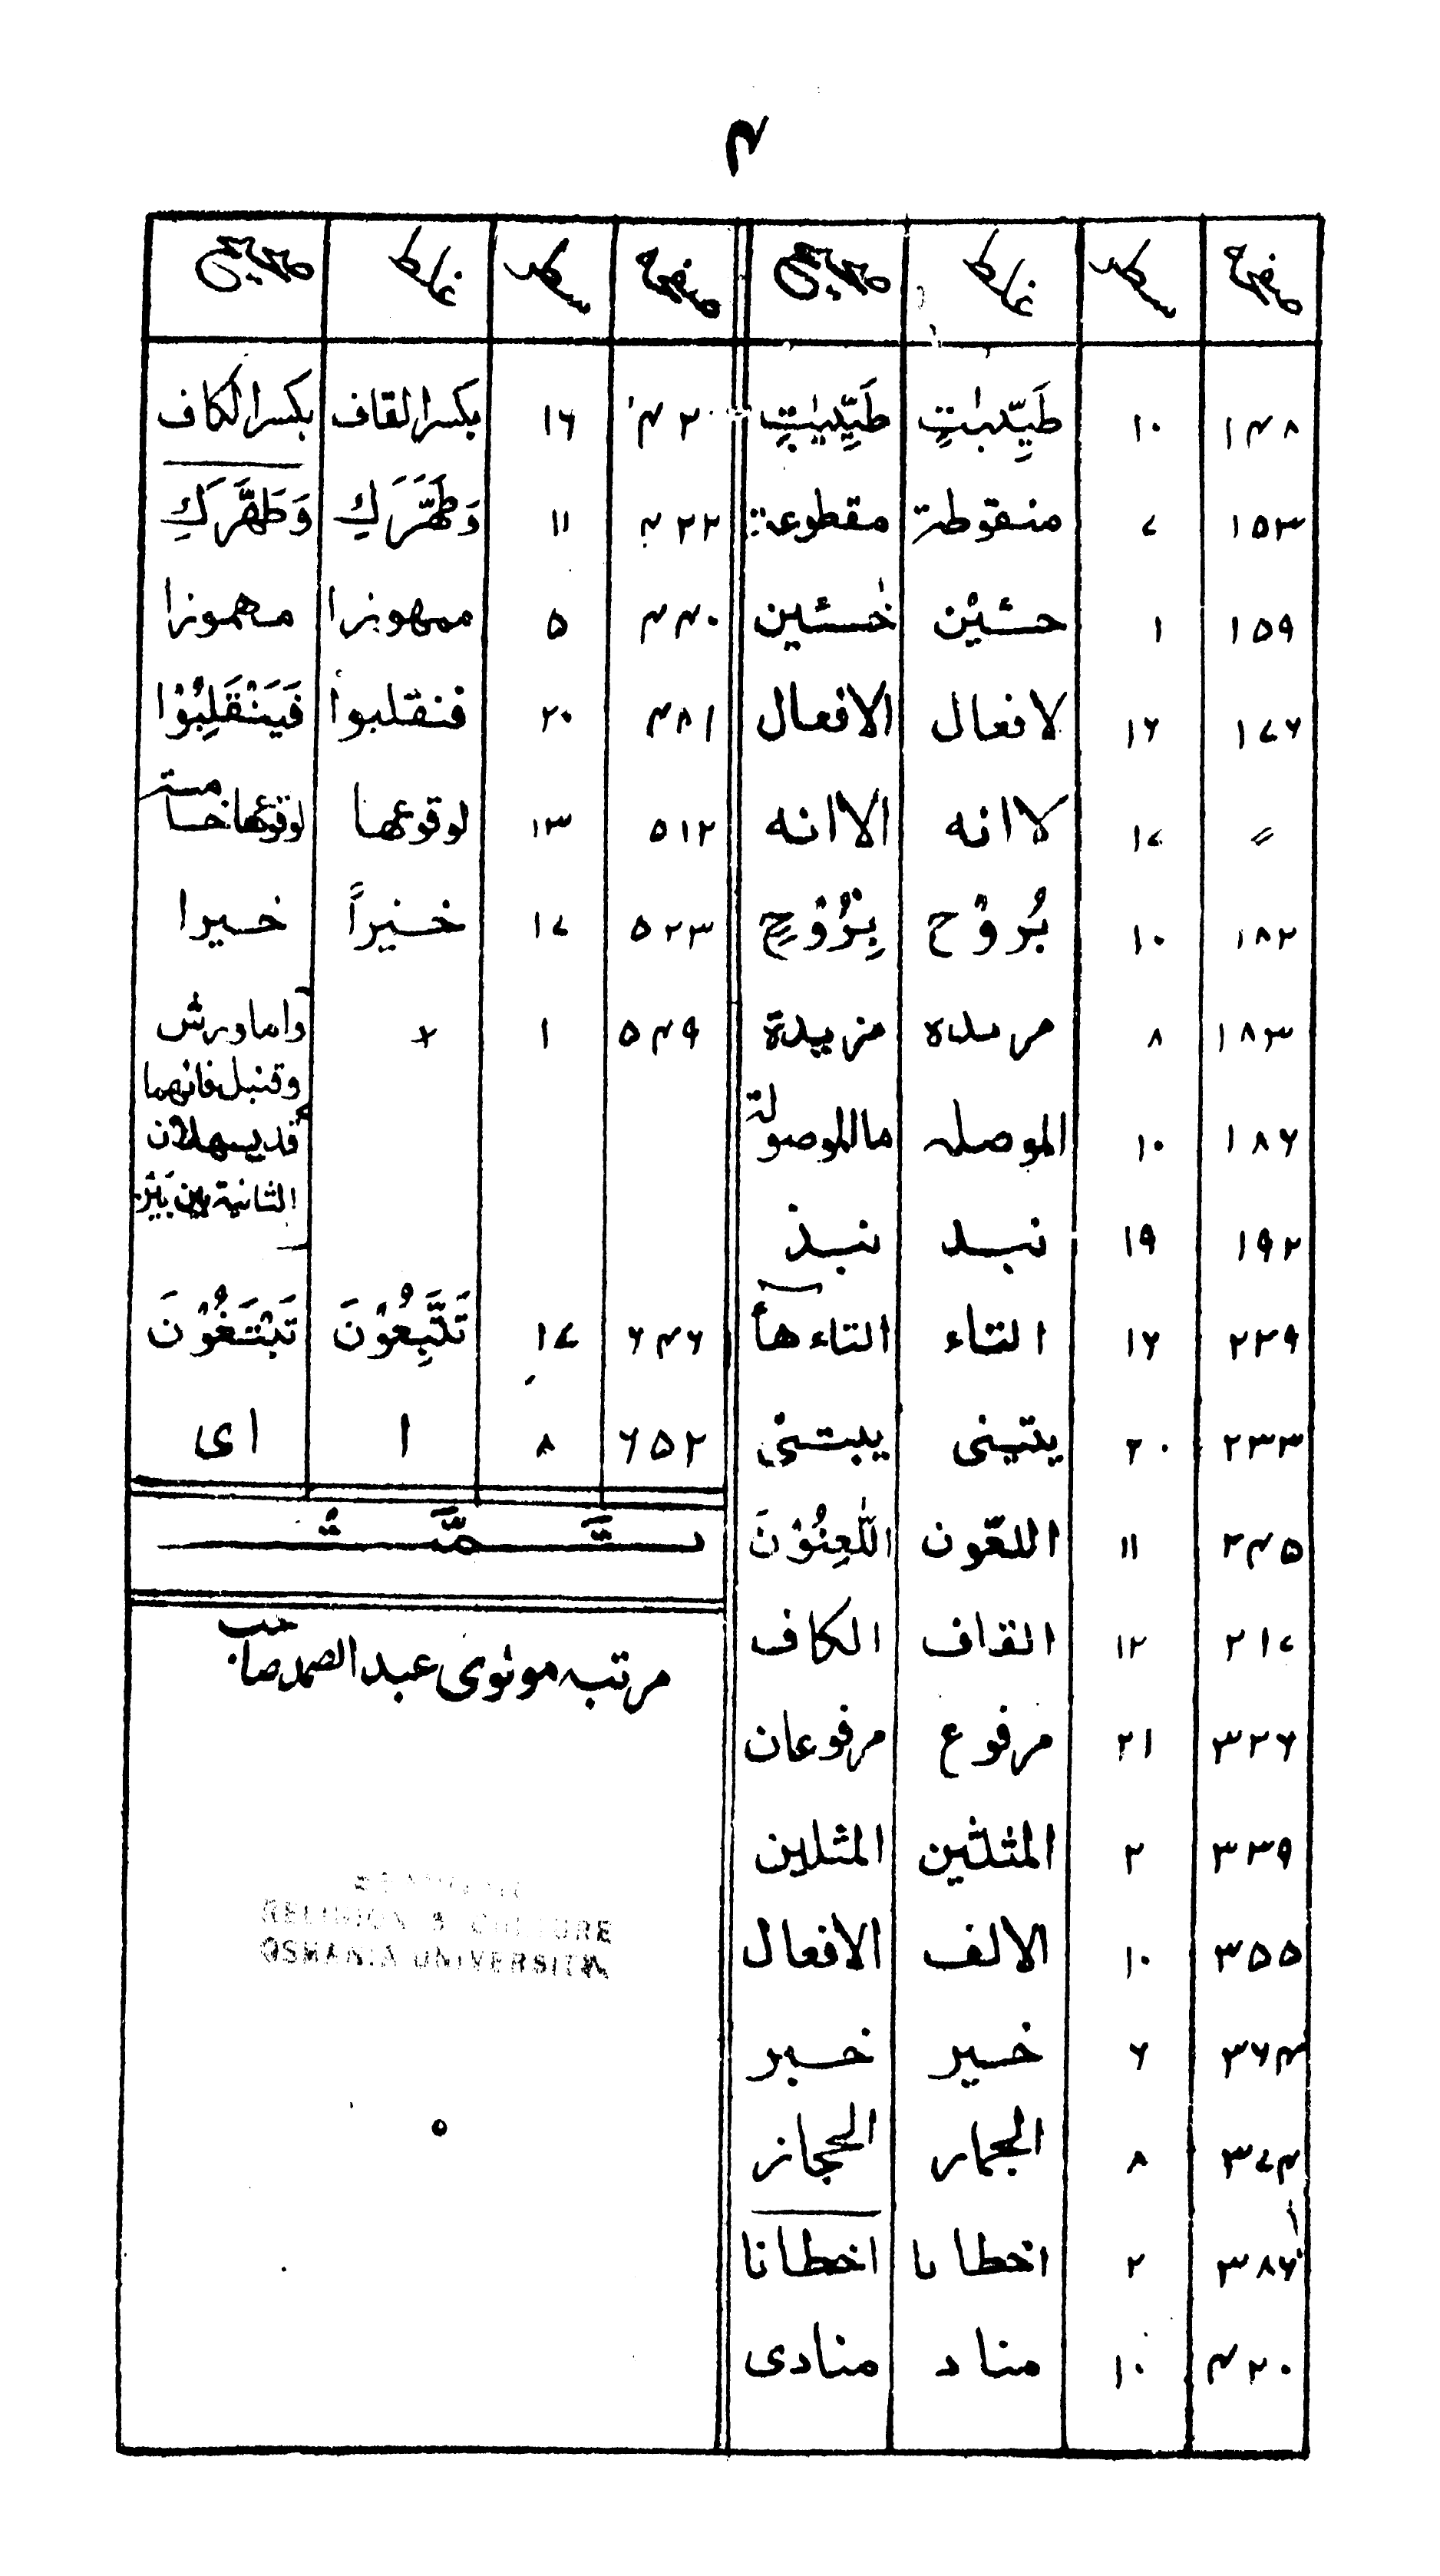 ۴
صفحه سطر غلط صحیح
۱۴۸ ۱۰ طَيِّبٰتٍ طَيِّبٰتٍ
۱۵۳ ۷ منقوطة مقطوعة
۱۵۹ ۱ خسئیْن خٰسئین
۱۷۶ ۱۶ لافعال الافعال
〃 ۱۷ لاانه الاانه
۱۸۲ ۱۰ بُروْح بِرُوْحِ
۱۸۳ ۸ مرىده مزيدة
۱۸۶ ۱۰ الموصله ماالموصولة
۱۹۲ ۱۹ نبد نبذ
۲۲۹ ۱۶ التاء التاء هأ
۲۳۳ ۲۰
۲۴۵ ۱۱ اللعّون اللّٰعِنُوْنَ
۲۱۷ ۱۲ القاف الكاف
۳۲۶ ۲۱ مرفوع مرفوعان
۳۳۹ ۲ المثلثين المثلين
۳۵۵ ۱۰ الالف الافعال
۳۶۴ ۶ خسير خبر
۳۷۴ ۸ الجمار الحجاز
۳۸۶ ۲ اخطاىا اخطانا
۴۲۰ ۱۰ مناد منادى
صفحه سطر غلط صحیح
۴۲۰ ۱۶ بكسرالقاف بكسرالكاف
۴۲۲ ۱۱ وَطَهَّرَكِ وَطَهَّرَكِ
۴۴۰ ۵ ممهوزا مهموزا
۴۸۱ ۲۰ فنقلبوا فَيَنْقَلِبُوْا
۵۱۲ ۱۳ لوقوعها لوقوعها خامسة
۵۲۳ ۱۷ خنيراً خسيرا
۵۴۹ ۱ × واما ورش
وقنبل فانهما
قد يسهلان
الثانية بين بين
۶۴۶ ۱۷ تَتَّبِعُوْنَ تَبْتَغُوْنَ
۶۵۲ ۸ ا اى
تَمَّتْ
مرتبه مولوى عبدالصمد صاحب
RELIGION & CULTURE
OSMANIA UNIVERSITY